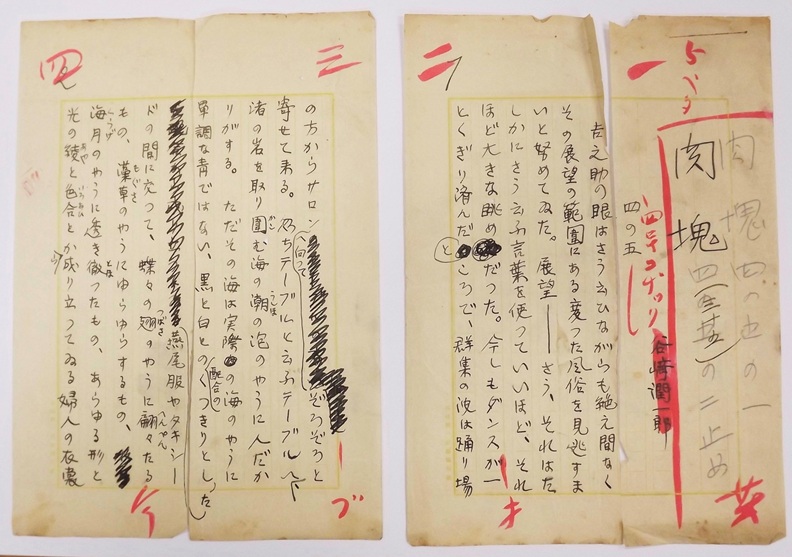 一
肉塊
四の五
谷崎潤一郎
二
吉之助の眼はさう云ひながらも絶え間なく
その展望の範圍にある変つた風俗を見逃すま
いと努めてゐた。展望――さう、それはた
しかにさう云ふ言葉を使つていいほど、それ
ほど大きな眺めだつた。今しもダンスが一
とくぎり済んだところで、群集の波は踊り場
三
の方からサロンへ向つてぞろぞろと
寄せて来る。乃ちテーブルと云ふテーブルへ
渚の岩を取り圍む海の潮の泡のやうに人だか
りがする。ただその海は実際の海のやうに
單調な青ではない、黒と白との配合のくつきりとした
燕尾服やタキシー
四
ドの間に交つて、蝶々の翅のやうに翩々たる
もの、藻草のやうにゆらゆらするもの、
海月のやうに透き徹つたもの、あらゆる形と
光の綾と色合とから成り立つてゐる婦人の衣裳